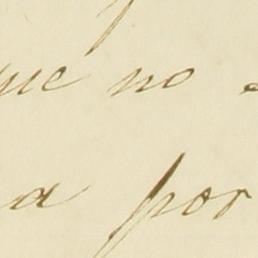 que no
a por